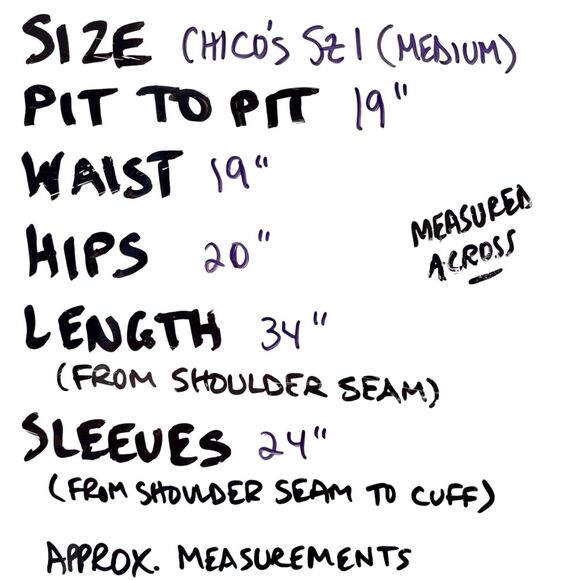 SIZE CHICO'S SZ 1 (MEDIUM)
PIT TO PIT 19"
WAIST 19"
HIPS 20"
MEASURED
ACROSS
LENGTH 34"
(FROM SHOULDER SEAM)
SLEEVES 24"
(FROM SHOULDER SEAM TO CUFF)
APPROX. MEASUREMENTS